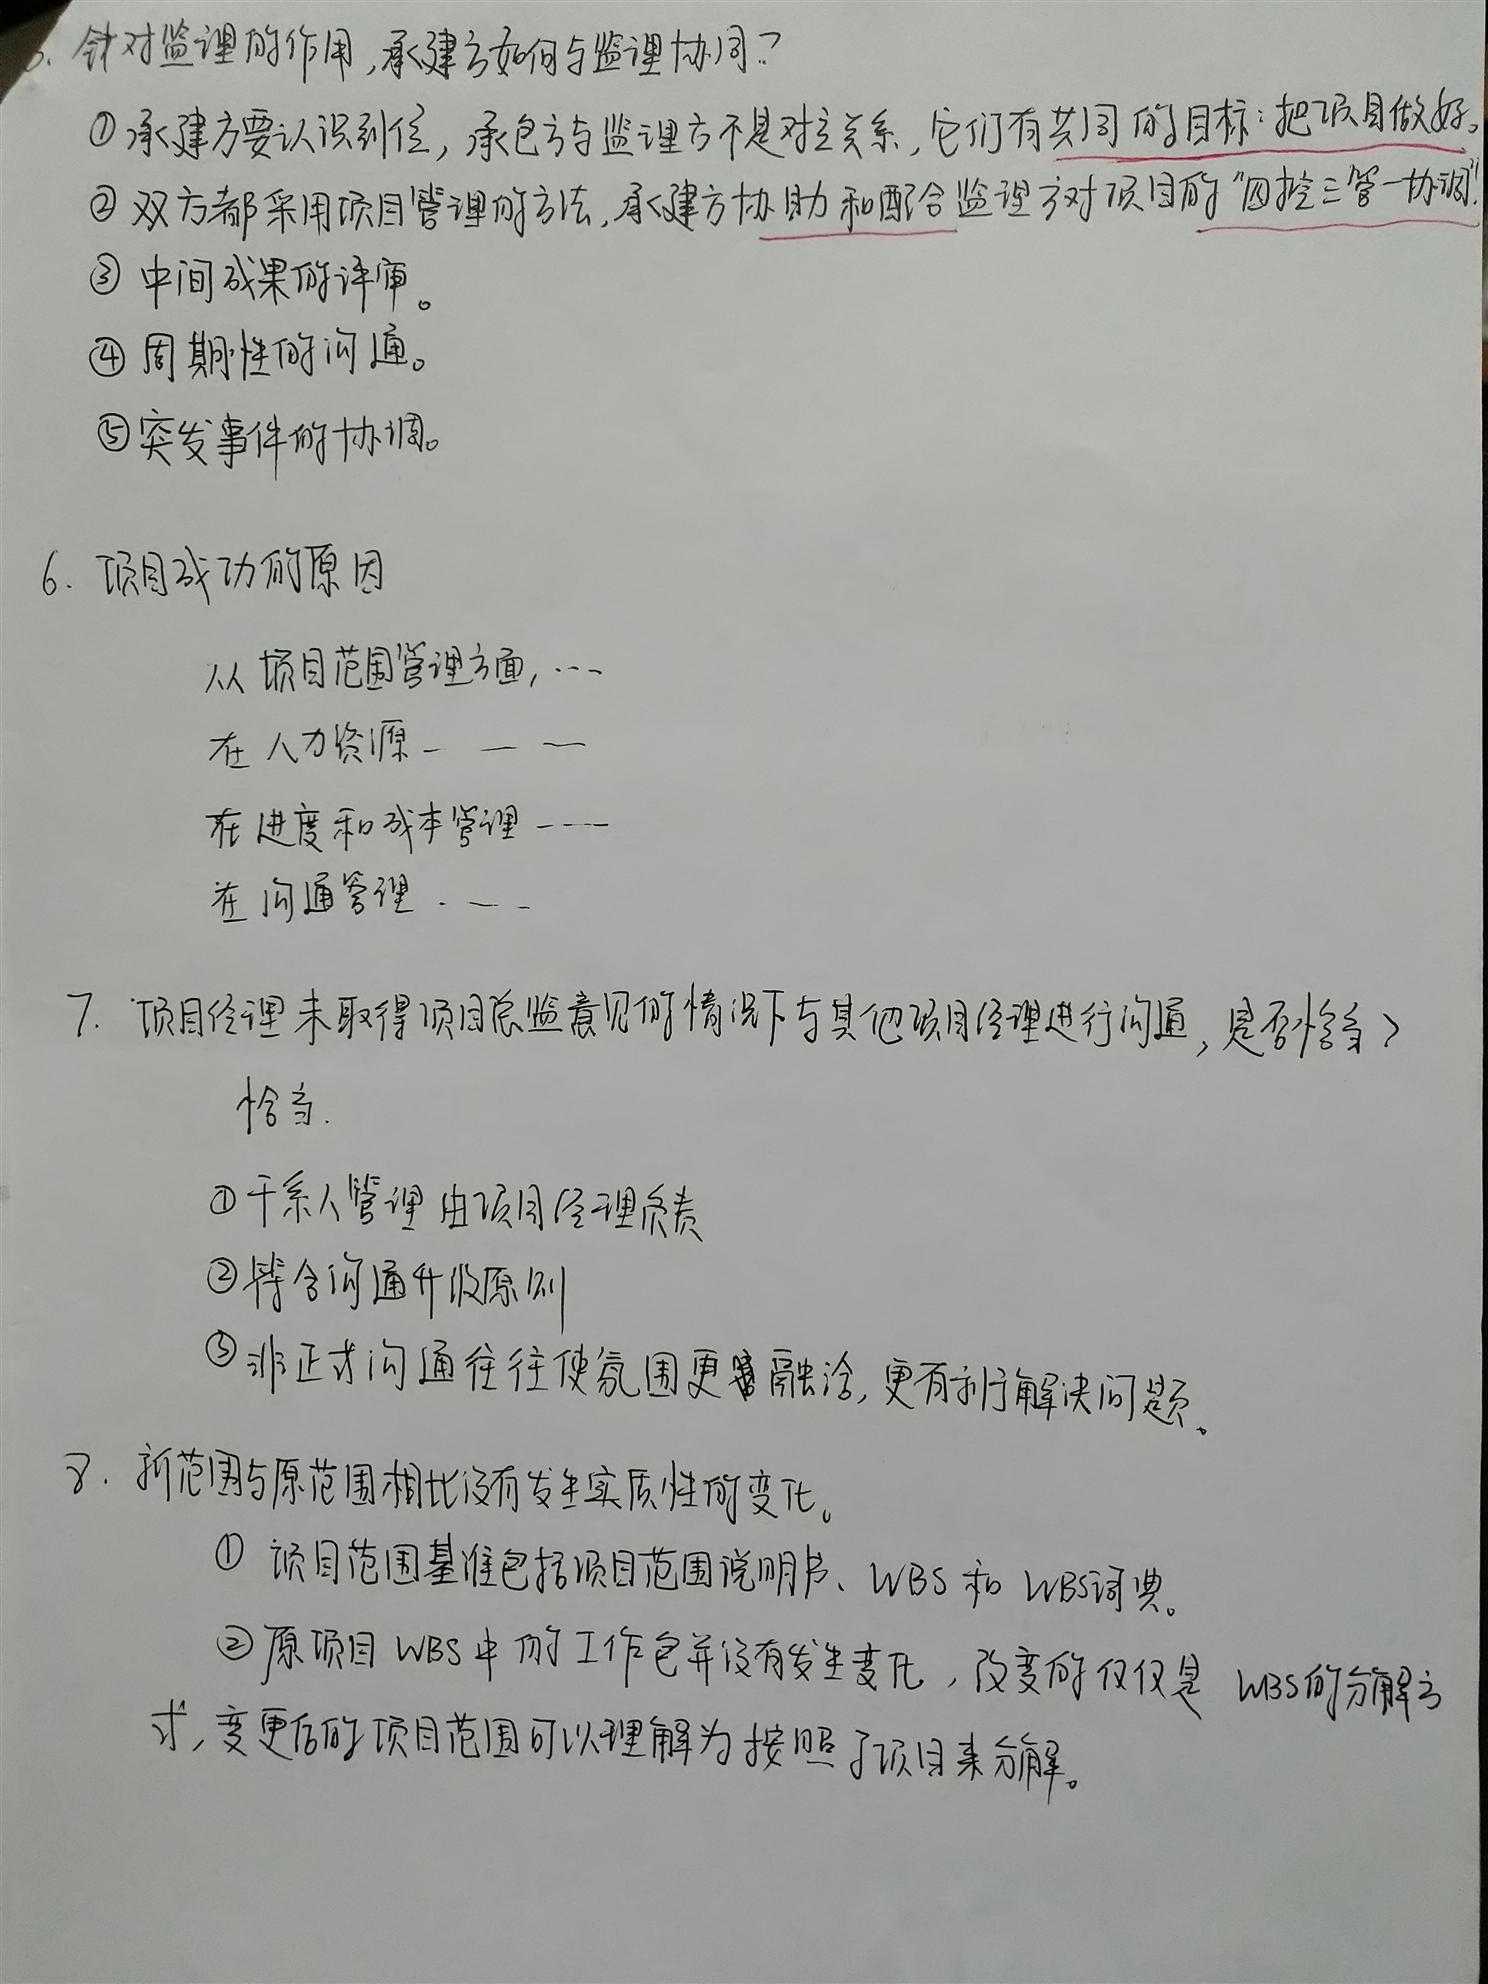 5. 针对监理的作用,承建方如何与监理协同?
①承建方要认识到位,承包方与监理方不是对立关系,它们有共同的目标:把项目做好。
②双方都采用项目管理的方法,承建方协助和配合监理方对项目的“四控三管一协调”.
③中间成果的评审。
④周期性的沟通。
⑤突发事件的协调。
6. 项目成功的原因
从项目范围管理方面,---
在人力资源- — —
在进度和成本管理----
在沟通管理.---
7. 项目经理未取得项目总监意见的情况下与其他项目经理进行沟通,是否恰当?
恰当.
①干系人管理由项目经理负责
②符合沟通升级原则
③非正式沟通往往使氛围更融洽,更有利于解决问题。
8. 新范围与原范围相比没有发生实质性的变化。
①项目范围基准包括项目范围说明书、WBS和WBS词典。
②原项目WBS中的工作包并没有发生变化,改变的仅仅是WBS的分解方
式,变更后的项目范围可以理解为按照子项目来分解。